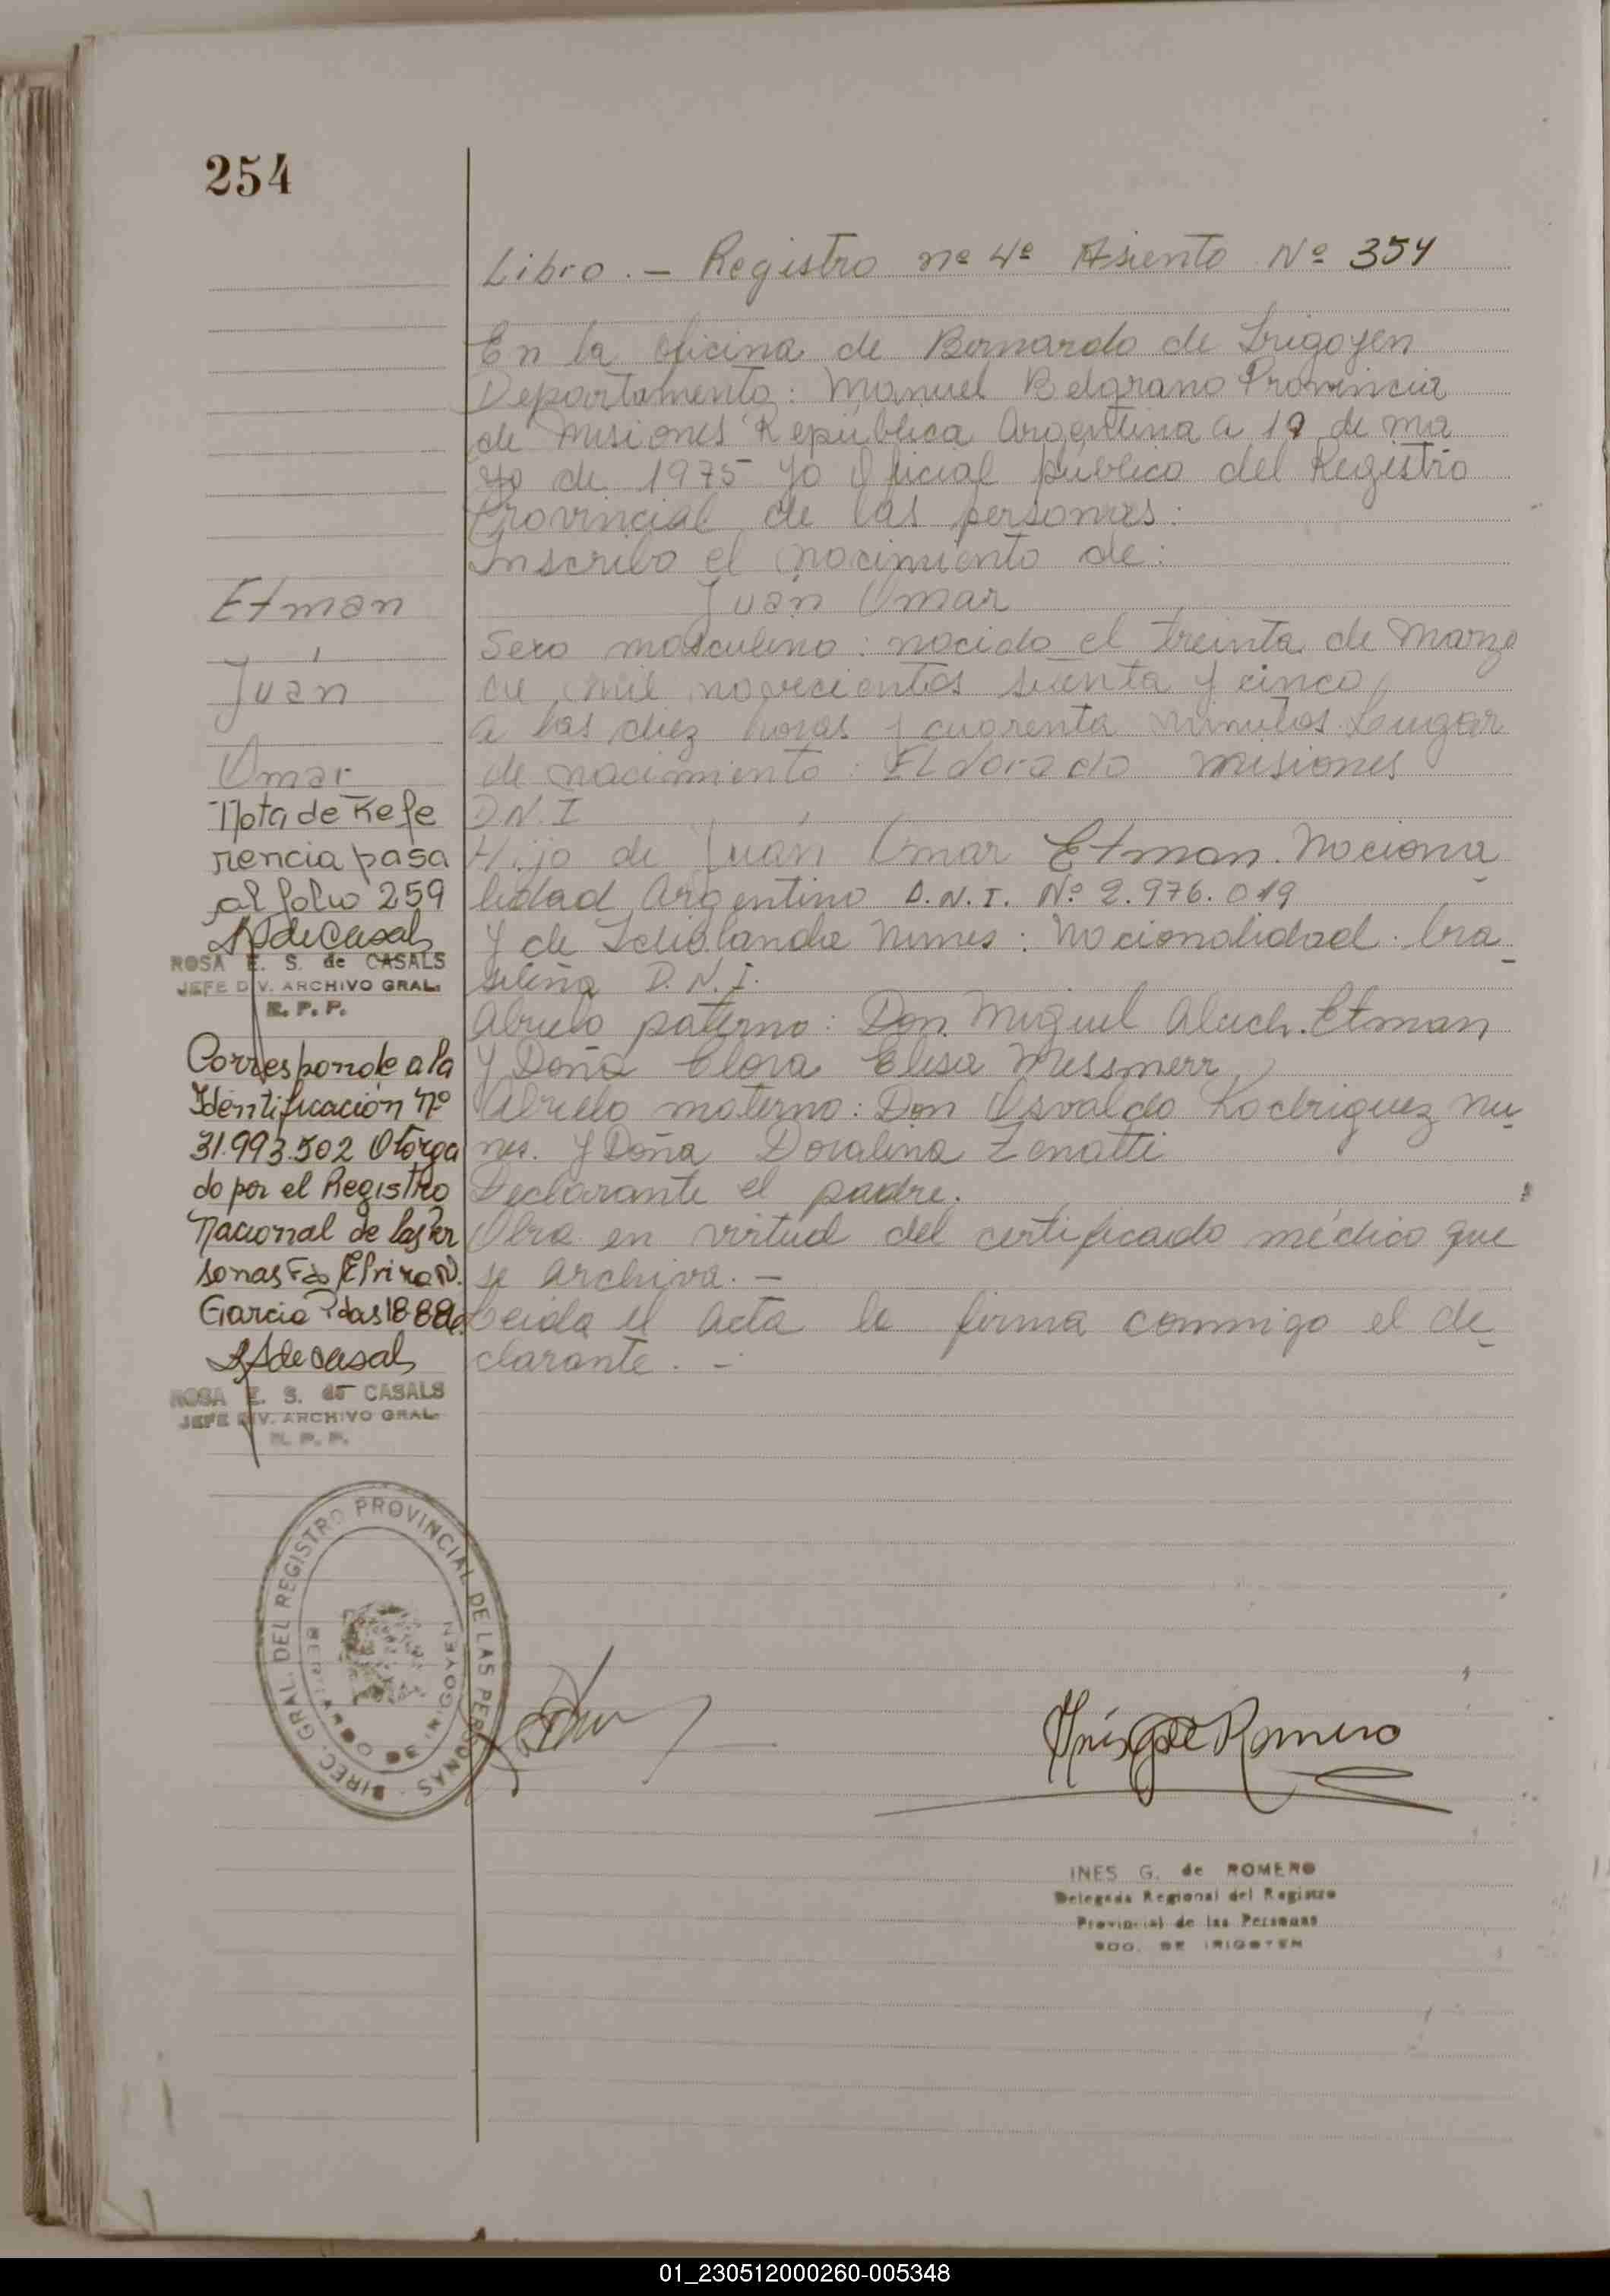 254
Libro. - Registro nº 4º Asiento Nº 354
En la oficina de Bernardo de Irigoyen
Departamento: Manuel Belgrano Provincia
de Misiones República Argentina a 19 de ma
yo de 1975 yo Oficial público del Registro
Provincial de las personas.
Inscribo el nacimiento de:
Juan Omar
Sexo masculino: nacido el treinta de Marzo
de mil novecientos setenta y cinco
a las diez horas y cuarenta minutos. Lugar
de nacimiento: Eldorado Misiones
D.N.I
Hijo de Juan Omar Etman. Naciona
lidad Argentino D.N.I. Nº 2.976.019
y de Nunes: Nacionalidad. bra
sileña D.N.I.
Abuelo paterno: Don Miguel Etman
y Doña Clora Elisa Messmerr
Abuelo materno: Don Osvaldo Rodriguez Nu
nes. y Doña Doralina Zenatti
Declarante el padre.
Obra en virtud del certificado médico que
se archiva. -
Leida el acta la firma conmigo el de
clarante. -
Etman
Juan
Omar
Nota de Refe
rencia pasa
al folio 259
ROSA E. S. de CASALS
JEFE DIV. ARCHIVO GRAL.
R. P. P.
Corresponde a la
Identificación nº
31.993.502 Otorga
do por el Registro
Nacional de las Per
sonas Fdo Elvira N.
Garcia Pdas 18-8-80.
ROSA E. S. de CASALS
JEFE DIV. ARCHIVO GRAL.
R. P. P.
DIREC. GRAL. DEL REGISTRO PROVINCIAL DE LAS PERSONAS
Inés G de Romero
INES G. de ROMERO
Delegada Regional del Registro
Provincial de las Personas
BDO. DE IRIGOYEN
01_230512000260-005348